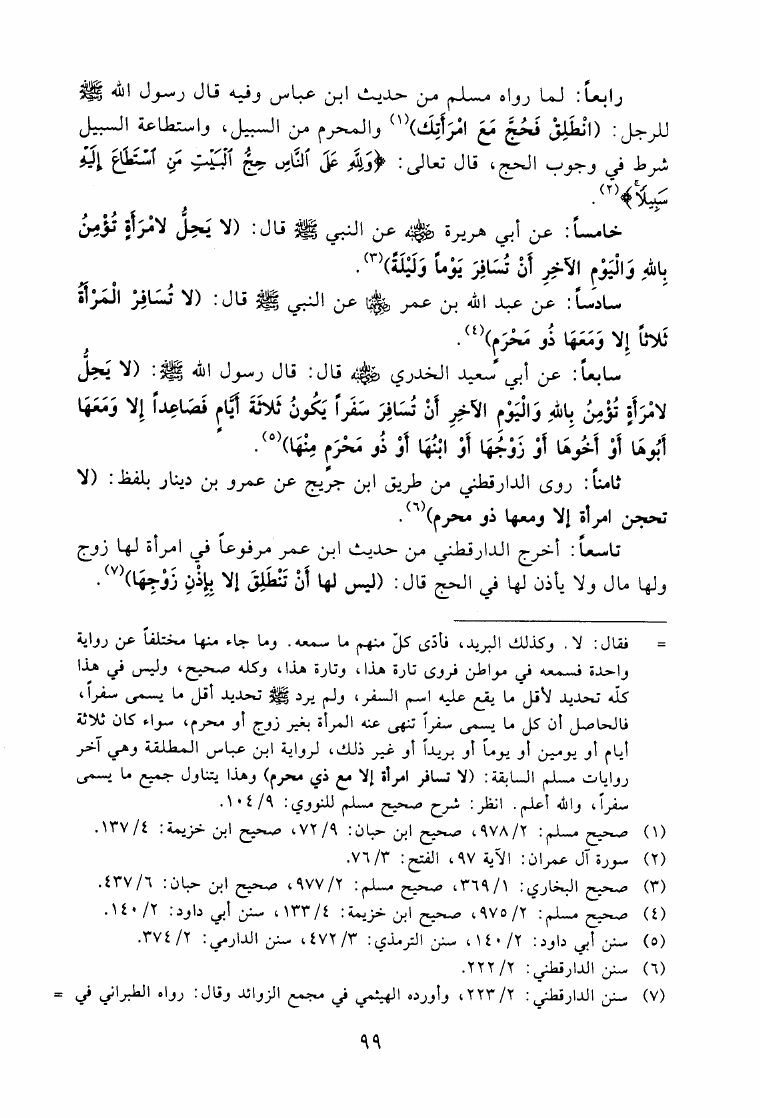 رابعاً: لما رواه مسلم من حديث ابن عباس وفيه قال رسول الله ﷺ
للرجل: (انْطَلِقْ فَحُجَّ مَعَ امْرَأَتِكَ)(١) والمحرم من السبيل، واستطاعة السبيل
شرط في وجوب الحج، قال تعالى: ﴿وَلِلَّهِ عَلَى ٱلنَّاسِ حِجُّ ٱلْبَيْتِ مَنِ ٱسْتَطَاعَ إِلَيْهِ
سَبِيلًا﴾(٢).
خامساً: عن أبي هريرة رضي الله عنه عن النبي ﷺ قال: (لا يَحِلُّ لامْرَأَةٍ تُؤْمِنُ
بِاللهِ وَالْيَوْمِ الآخِرِ أَنْ تُسَافِرَ يَوْماً وَلَيْلَةً)(٣).
سادساً: عن عبد الله بن عمر رضي الله عنهما عن النبي ﷺ قال: (لا تُسَافِرْ الْمَرْأَةُ
ثَلاثاً إِلا وَمَعَهَا ذُو مَحْرَمٍ)(٤).
سابعاً: عن أبي سعيد الخدري رضي الله عنه قال: قال رسول الله ﷺ: (لا يَحِلُّ
لامْرَأَةٍ تُؤْمِنُ بِاللهِ وَالْيَوْمِ الآخِرِ أَنْ تُسَافِرَ سَفَراً يَكُونُ ثَلاثَةَ أَيَّامٍ فَصَاعِداً إِلا وَمَعَهَا
أَبُوهَا أَوْ أَخُوهَا أَوْ زَوْجُهَا أَوْ ابْنُهَا أَوْ ذُو مَحْرَمٍ مِنْهَا)(٥).
ثامناً: روى الدارقطني من طريق ابن جريج عن عمرو بن دينار بلفظ: (لا
تحجن امرأة إلا ومعها ذو محرم)(٦).
تاسعاً: أخرج الدارقطني من حديث ابن عمر مرفوعاً في امرأة لها زوج
ولها مال ولا يأذن لها في الحج قال: (ليس لها أَنْ تَنْطَلِقَ إلا بِإِذْنِ زَوْجِهَا)(٧).
= فقال: لا. وكذلك البريد، فأدّى كلّ منهم ما سمعه. وما جاء منها مختلفاً عن رواية
واحدة فسمعه في مواطن فروى تارة هذا، وتارة هذا، وكله صحيح، وليس في هذا
كلّه تحديد لأقل ما يقع عليه اسم السفر، ولم يرد ﷺ تحديد أقل ما يسمى سفراً،
فالحاصل أن كل ما يسمى سفراً تنهى عنه المرأة بغير زوج أو محرم، سواء كان ثلاثة
أيام أو يومين أو يوماً أو بريداً أو غير ذلك، لرواية ابن عباس المطلقة وهي آخر
روايات مسلم السابقة: (لا تسافر امرأة إلا مع ذي محرم) وهذا يتناول جميع ما يسمى
سفراً، والله أعلم. انظر: شرح صحيح مسلم للنووي: ٩/ ١٠٤.
(١) صحيح مسلم: ٢/ ٩٧٨، صحيح ابن حبان: ٩/ ٧٢، صحيح ابن خزيمة: ٤/ ١٣٧.
(٢) سورة آل عمران: الآية ٩٧، الفتح: ٣/ ٧٦.
(٣) صحيح البخاري: ١/ ٣٦٩، صحيح مسلم: ٢/ ٩٧٧، صحيح ابن حبان: ٦/ ٤٣٧.
(٤) صحيح مسلم: ٢/ ٩٧٥، صحيح ابن خزيمة: ٤/ ١٣٣، سنن أبي داود: ٢/ ١٤٠.
(٥) سنن أبي داود: ٢/ ١٤٠، سنن الترمذي: ٣/ ٤٧٢، سنن الدارمي: ٢/ ٣٧٤.
(٦) سنن الدارقطني: ٢/ ٢٢٢.
(٧) سنن الدارقطني: ٢/ ٢٢٣، وأورده الهيثمي في مجمع الزوائد وقال: رواه الطبراني في =
٩٩